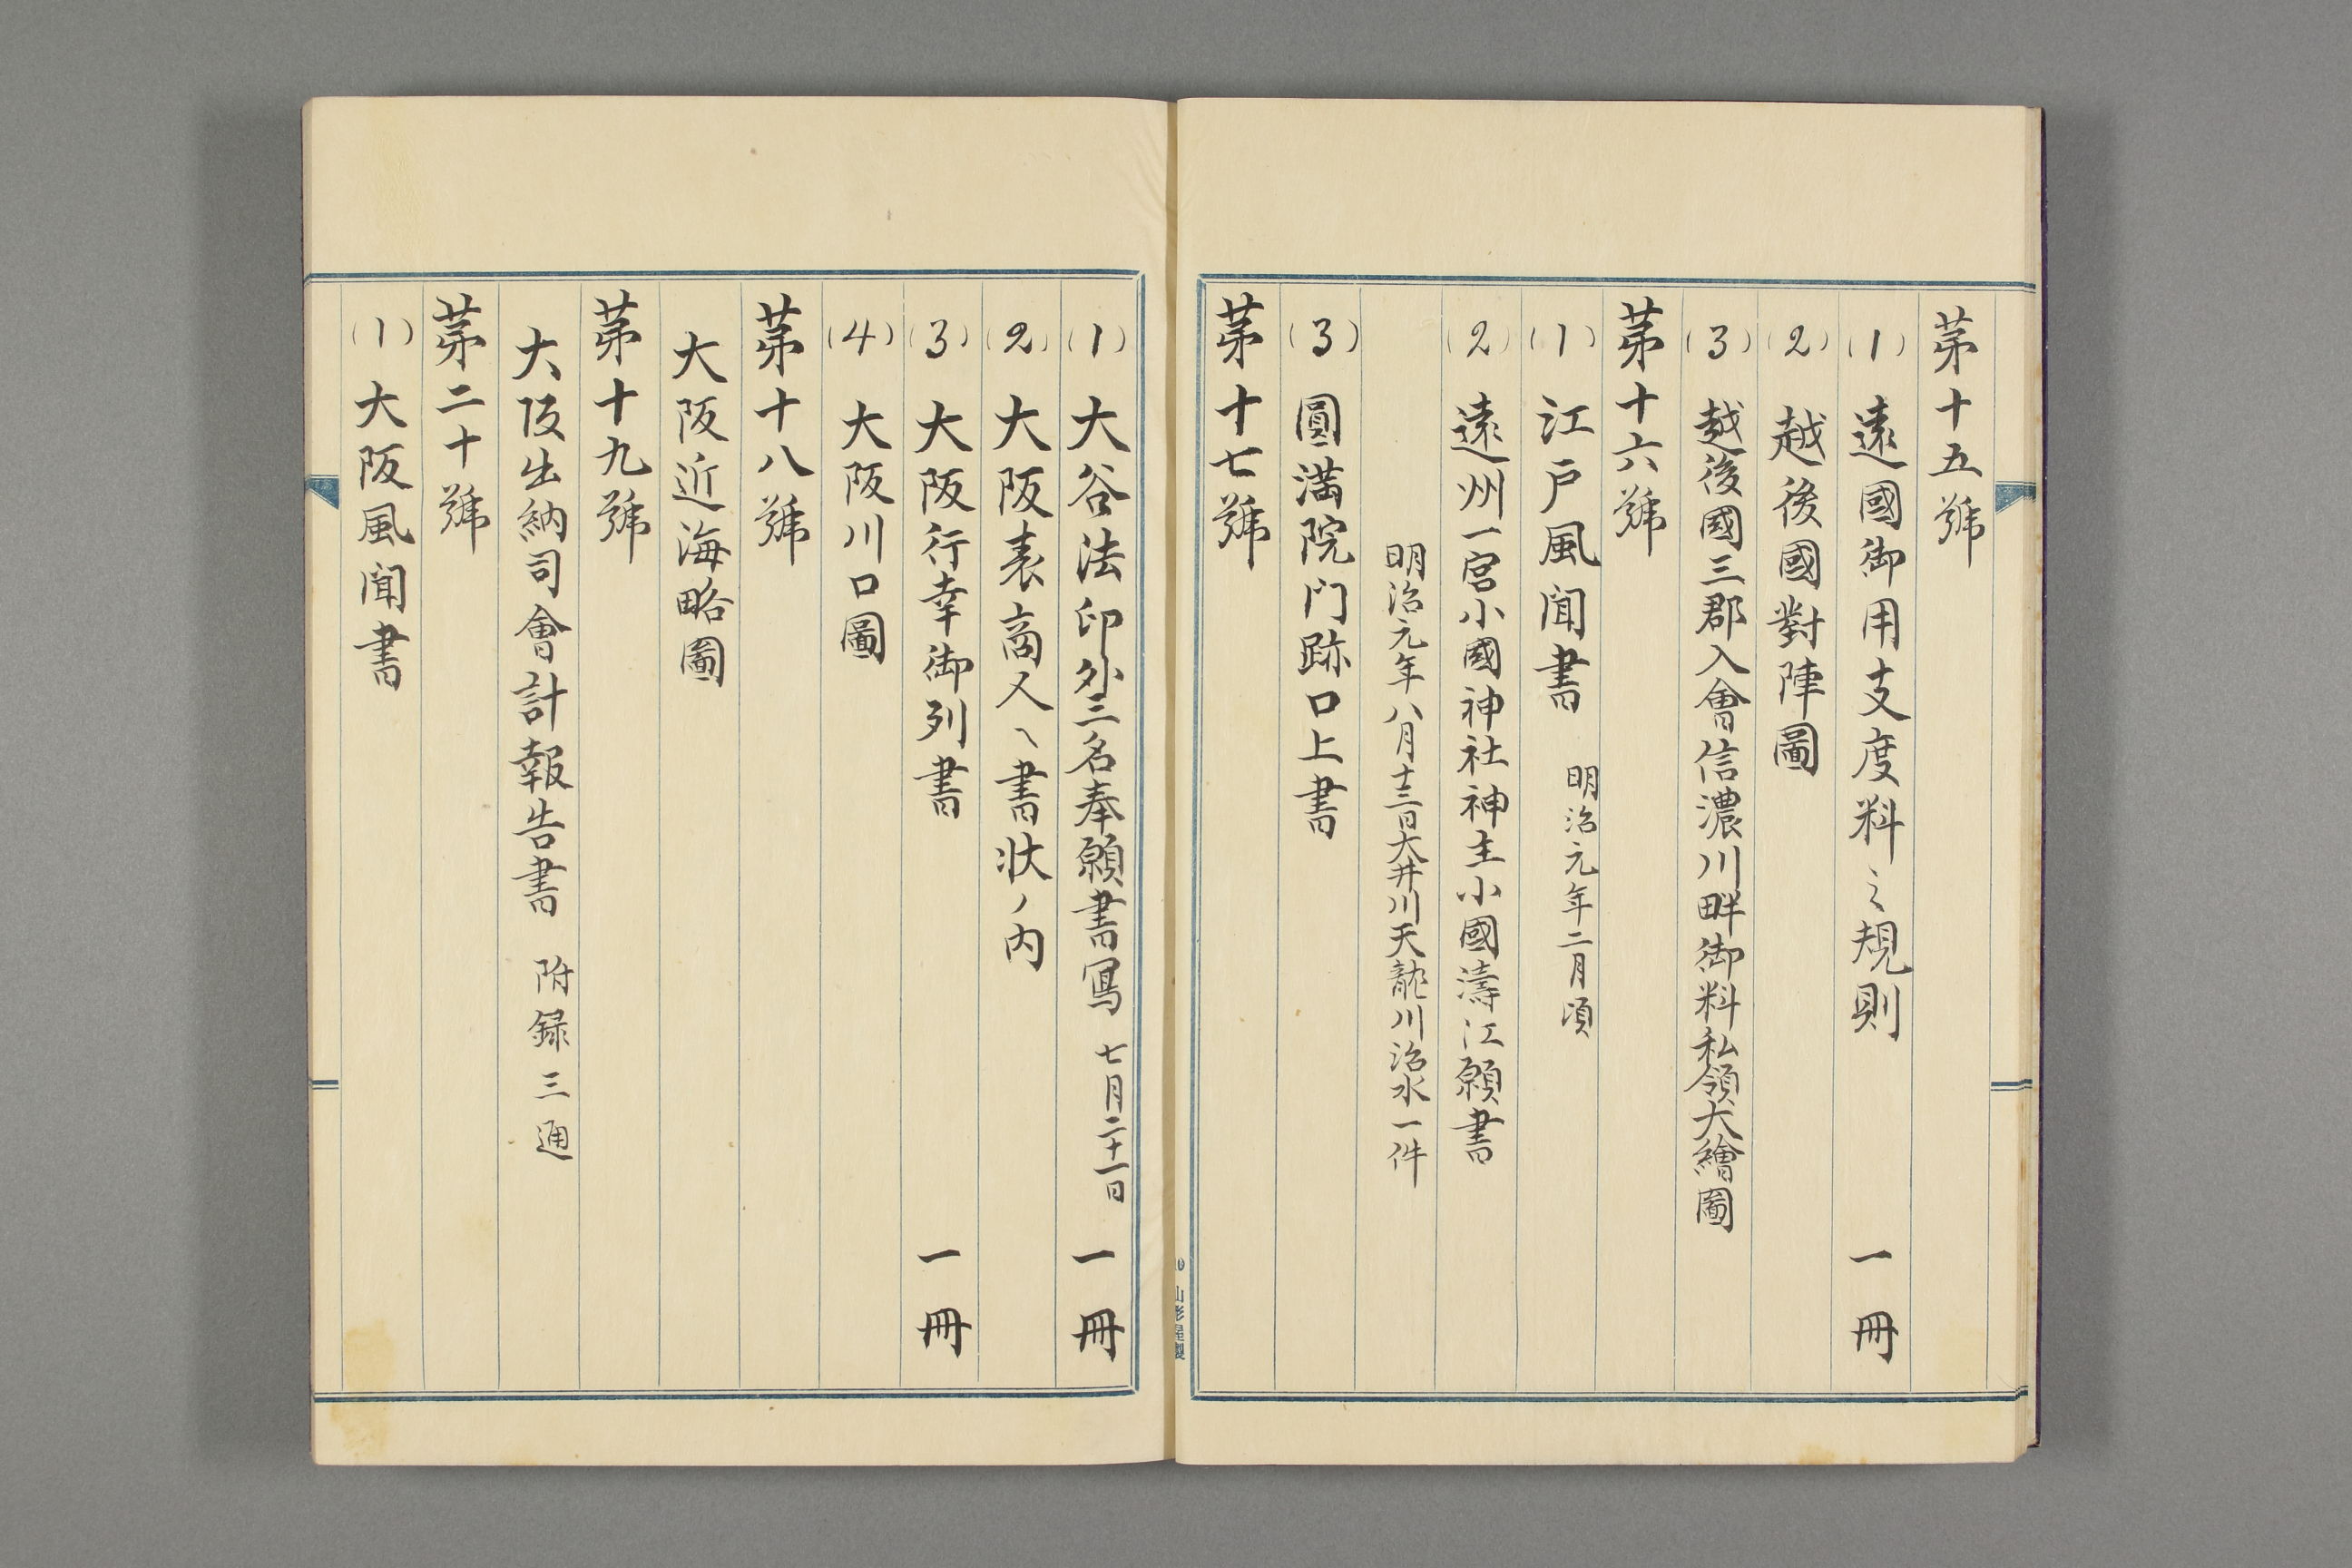 第十五號
(1) 遠國御用支度料之規則 一冊
(2) 越後國對陣圖
(3) 越後國三郡入會信濃川畔御料私領大繪圖
第十六號
(1) 江戸風聞書 明治元年二月頃
(2) 遠州一宮小國神社神主小國濤江願書
明治元年八月十三日大井川天龍川治水一件
(3) 圓満院门跡口上書
第十七號
(1) 大谷法印外三名奉願書寫 七月二十一日 一冊
(2) 大阪表商人ヘ書状ノ内
(3) 大阪行幸御列書 一冊
(4) 大阪川口圖
第十八號
大阪近海略圖
第十九號
大阪出納司會計報告書 附録三通
第二十號
(1) 大阪風聞書